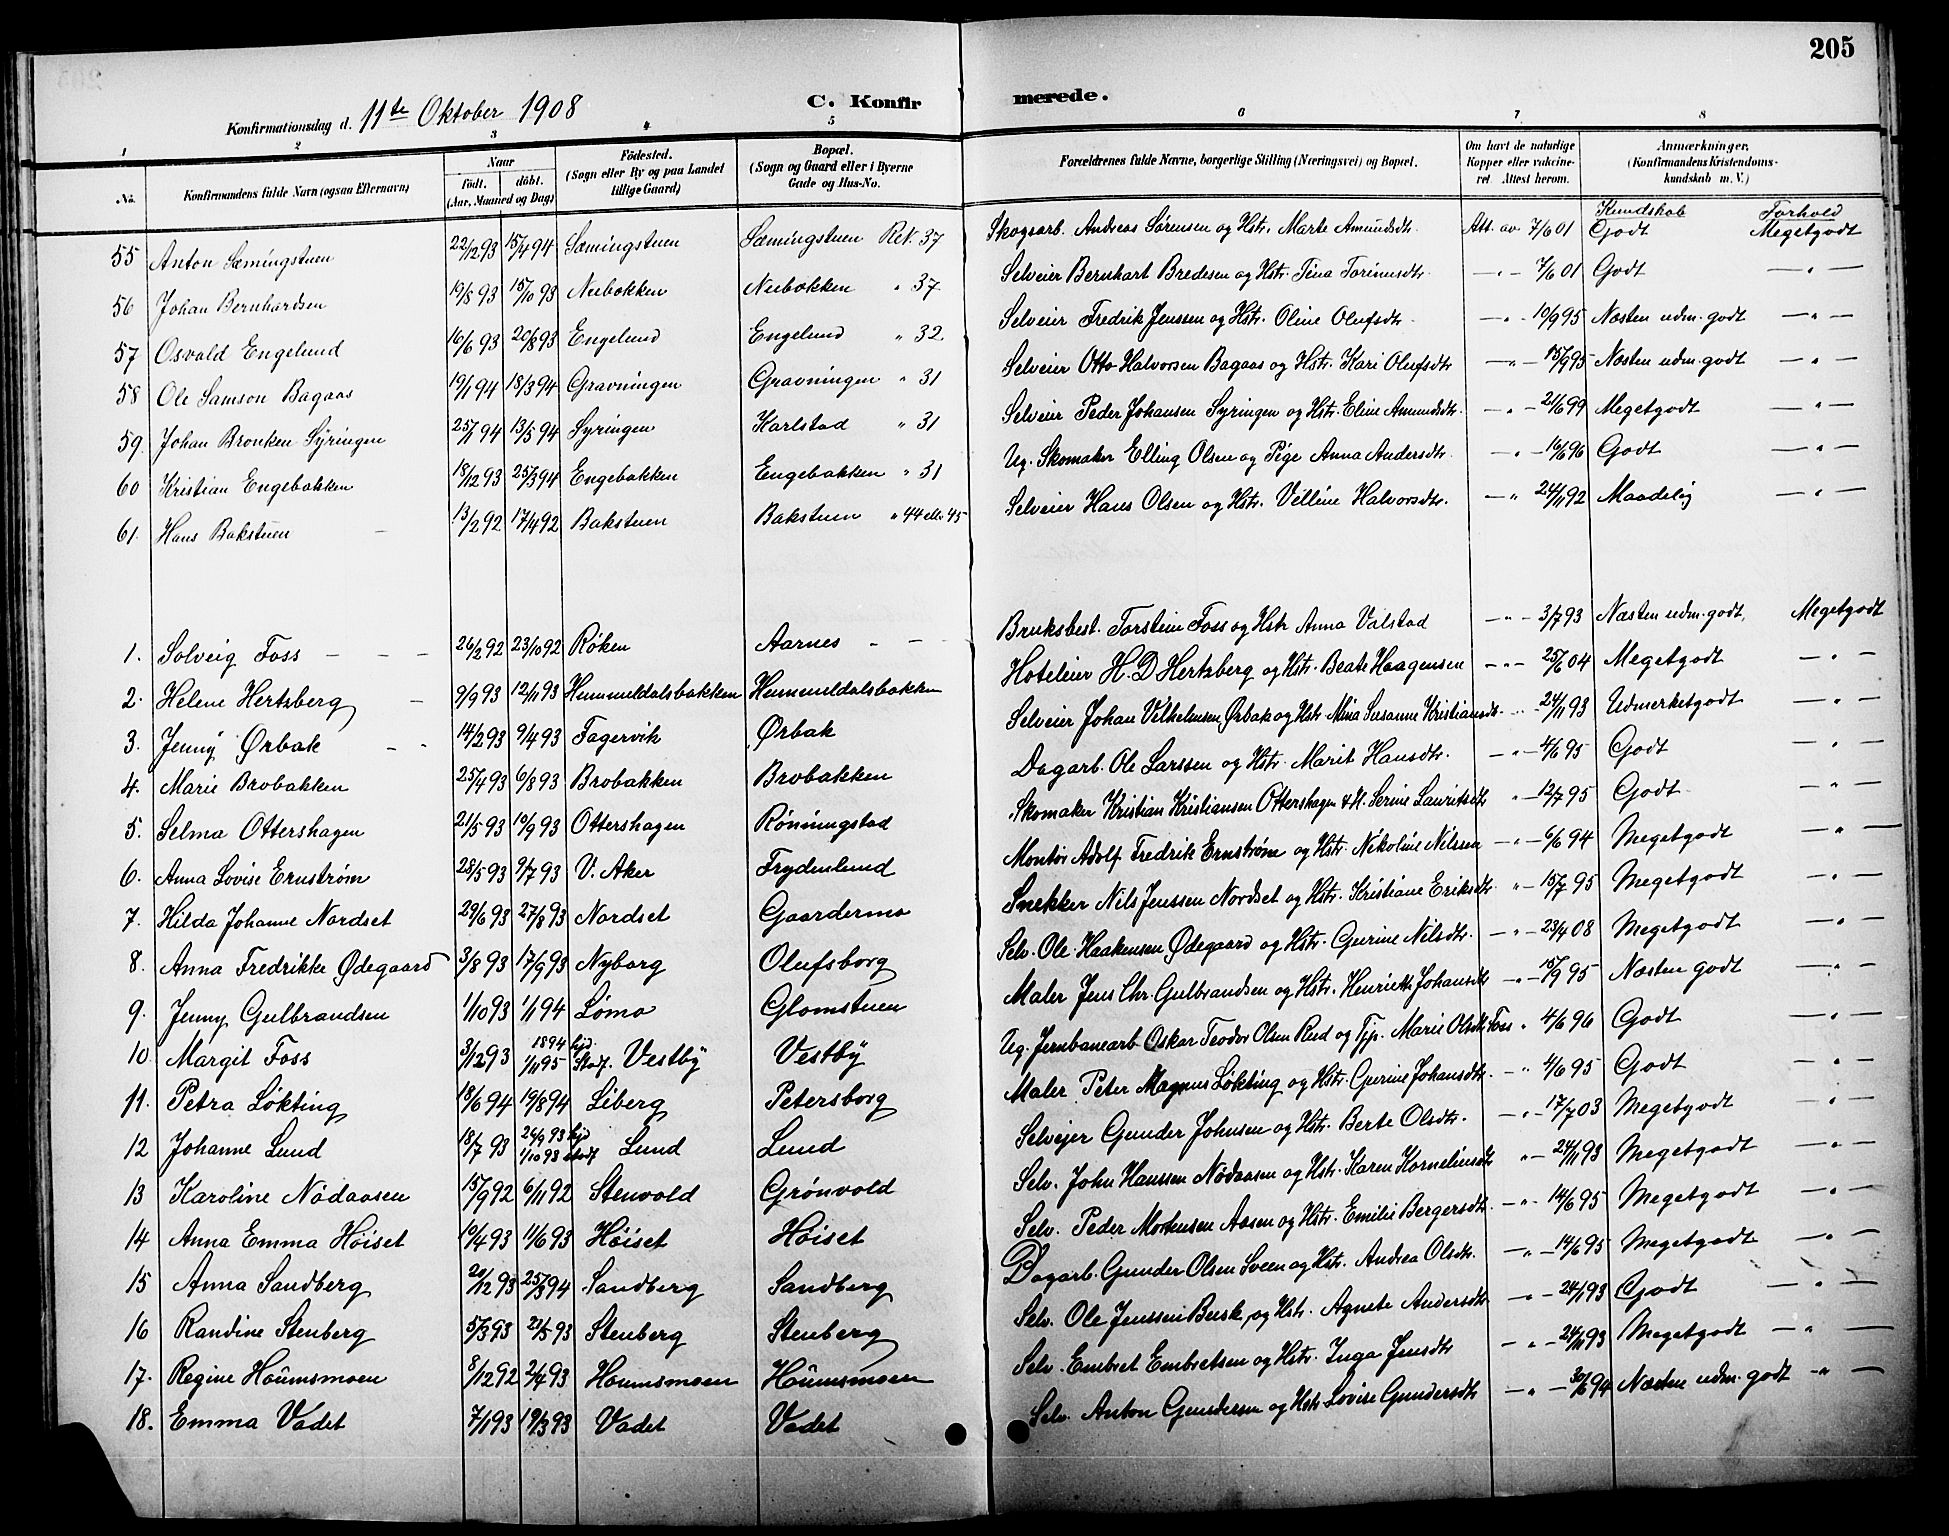 205
Konfirmationsdag d. 11te Oktober 1908 C. Konfirmerede.
1 2 3 4 5 6 7 8
No. Konfirmandens fulde Navn (ogsaa Efternavn) Naar født. døbt. (Aar, Maaned og Dag) Fødested. (Sogn eller By og paa Landet tillige Gaard) Bopæl. (Sogn og Gaard eller i Byerne Gade og Hus-No. Forældrenes fulde Navne, borgerlige Stilling (Næringsvei) og Bopæl. Om havt de naturlige Kopper eller vaccineret. Attest herom. Anmærkninger, (Konfirmandens Kristendomskundskab m. V.)
Kundskab Forhold
55 Anton Sæmingstuen 22/12 93 15/4 94 Sæmingstuen Sæmingstuen Rek. 37 Skogsarb. Andreas Sørensen og Hstr. Marte Amundsdtr. Att. av 7/6 01 Godt Megetgodt
56 Johan Bernhardsen 19/8 93 15/10 93 Neebakken Neebakken " 37 Selveier Bernhart Bredesen og Hstr. Tina Torinusdtr. — " — 7/6 01 Godt — " —
57 Osvald Engelund 16/6 93 20/8 93 Engelund Engelund " 32 Selveier Fredrik Jenssen og Hstr. Oline Olufsdtr. — " — 10/9 95 Næsten udm. godt — " —
58 Ole Samson Bagaas 19/1 94 18/3 94 Gravningen Gravningen " 31 Selveier Otto Halvorsen Bagaas og Hstr. Kari Olufsdtr — " — 15/9 95 Næsten udm. godt — " —
59. Johan Bronken Syringen 25/1 94 13/5 94 Syringen Karlstad " 31 Selveier Peder Johansen Syringen og Hstr. Eline Amundsdtr. — " — 21/6 99 Megetgodt — " —
60 Kristian Engebakken 18/12 93 25/3 94 Engebakken Engebakken " 31 Ug. Skomaker Elling Olsen og Pige Anna Andersdtr. " — 16/6 96 Godt — " —
61. Hans Bakstuen 13/2 92 17/4 92 Bakstuen Bakstuen " 44 elle. 45 Selveier Hans Olsen og Hstr. Velline Halvorsdtr. — " 24/11 92 Maadelig — " —
1. Solveig Foss 26/2 92 23/10 92 Røken Aarnes Bruksbest. Torstein Foss og Hstr Anna Valstad — " — 3/7 93 Næsten udm. godt, Megetgodt
2. Helene Hertzberg 9/9 93 12/11 93 Hummeldalsbakken Hummeldalsbakken Hoteleier H. D Hertzberg og Hstr. Beate Haagensen — " — 25/6 04 Megetgodt — " —
3. Jenny Ørbak 14/2 93 9/4 93 Fagervik Ørbak Selveier Johan Vilhelmsen Ørbak og Hstr. Mina Susanne Kristiansdtr. — " — 24/11 93 Udmerketgodt — " —
4. Marie Brobakken 25/4 93 6/8 93 Brobakken Brobakken Dagarb. Ole Larssen og Hstr. Marit Hansdtr. — " — 4/6 95 Godt — " —
5. Selma Ottershagen 21/5 93 10/9 93 Ottershagen Rönningstad Skomaker Kristian Kristiansen Ottershagen & H. Serine Lauritsdtr " — 12/7 95 Godt — " —
6. Anna Lovise Ernstrøm 28/5 93 9/7 93 V. Aker Frydenlund Montør Adolf Fredrik Ernstrøm og Hstr. Nikoline Nilssen — " — 6/6 94 Megetgodt — " —
7. Hilda Johanne Nordset 29/6 93 27/8 93 Nordset Gaardermo Snekker Nils Jenssen Nordset og Hstr. Kristiane Eriksdtr. " — 15/7 95 Megetgodt — " —
8. Anna Fredrikke Ødegaard 3/8 93 17/9 93 Nyborg Olufsborg Selv. Ole Haakensen Ødegaard og Hstr. Gurine Nilsdtr. — " — 23/4 08 Megetgodt — " —
9. Jenny Gulbrandsen 1/10 93 1/1 94 Lømo Glomstuen Maler Jens Chr. Gulbrandsen og Hstr. Henriette Johansdtr — " — 15/9 95 Næsten godt — " —
10. Margit Foss 3/12 93 1894 hjd. 1/11 95 Stadf. Vestby Vestby Ug. Jernbanearb Oskar Teodor Olsen Rud og Tjp. Marie Olsdtr. Foss " 4/6 96 Godt — " —
11. Petra Løkting 18/6 94 19/8 94 Liberg Petersborg Maler Peter Magnus Løkting og Hstr. Gurine Johansdtr. — " 4/6 95 Godt — " —
12 Johanne Lund 18/7 93 24/9 93 hjd 1/10 93 stadf Lund Lund Selvejer Gunder Johnsen og Hstr. Berte Olsdtr. — " — 17/7 03 Megetgodt — " —
13 Karoline Nödaasen 15/9 92 6/11 92 Stenvold Grönvold Selv. John Hanssen Nödaasen og Hstr. Karen Korneliusdtr " — 24/11 93 Megetgodt — " —
14 Anna Emma Höiset 10/4 93 11/6 93 Höiset Höiset Selv. Peder Mortensen Aasen og Hstr. Emilie Bergersdtr. — " — 14/6 95 Megetgodt — " —
15 Anna Sandberg 20/12 93 25/3 94 Sandberg Sandberg Dagarb. Gunder Olsen Sveen og Hstr. Andrea Olsdtr. — " — 14/6 95 Megetgodt — " —
16 Randine Stenberg 5/3 93 21/5 93 Stenberg Stenberg Selv. Ole Jenssen Busk, og Hstr. Agnete Andersdtr — " — 24/11 93 Godt — " —
17. Regine Houmsmoen 8/12 92 2/4 93 Houmsmoen Houmsmoen Selv. Embret Embretsen og Hstr. Inga Jensdtr — " — 24/11 93 Megetgodt — " —
18. Emma Vadet 7/1 93 19/3 93 Vadet Vadet Selv. Anton Gundersen og Hstr Lovise Gundersdtr — " — 30/6 94 Næsten udm. godt — " —